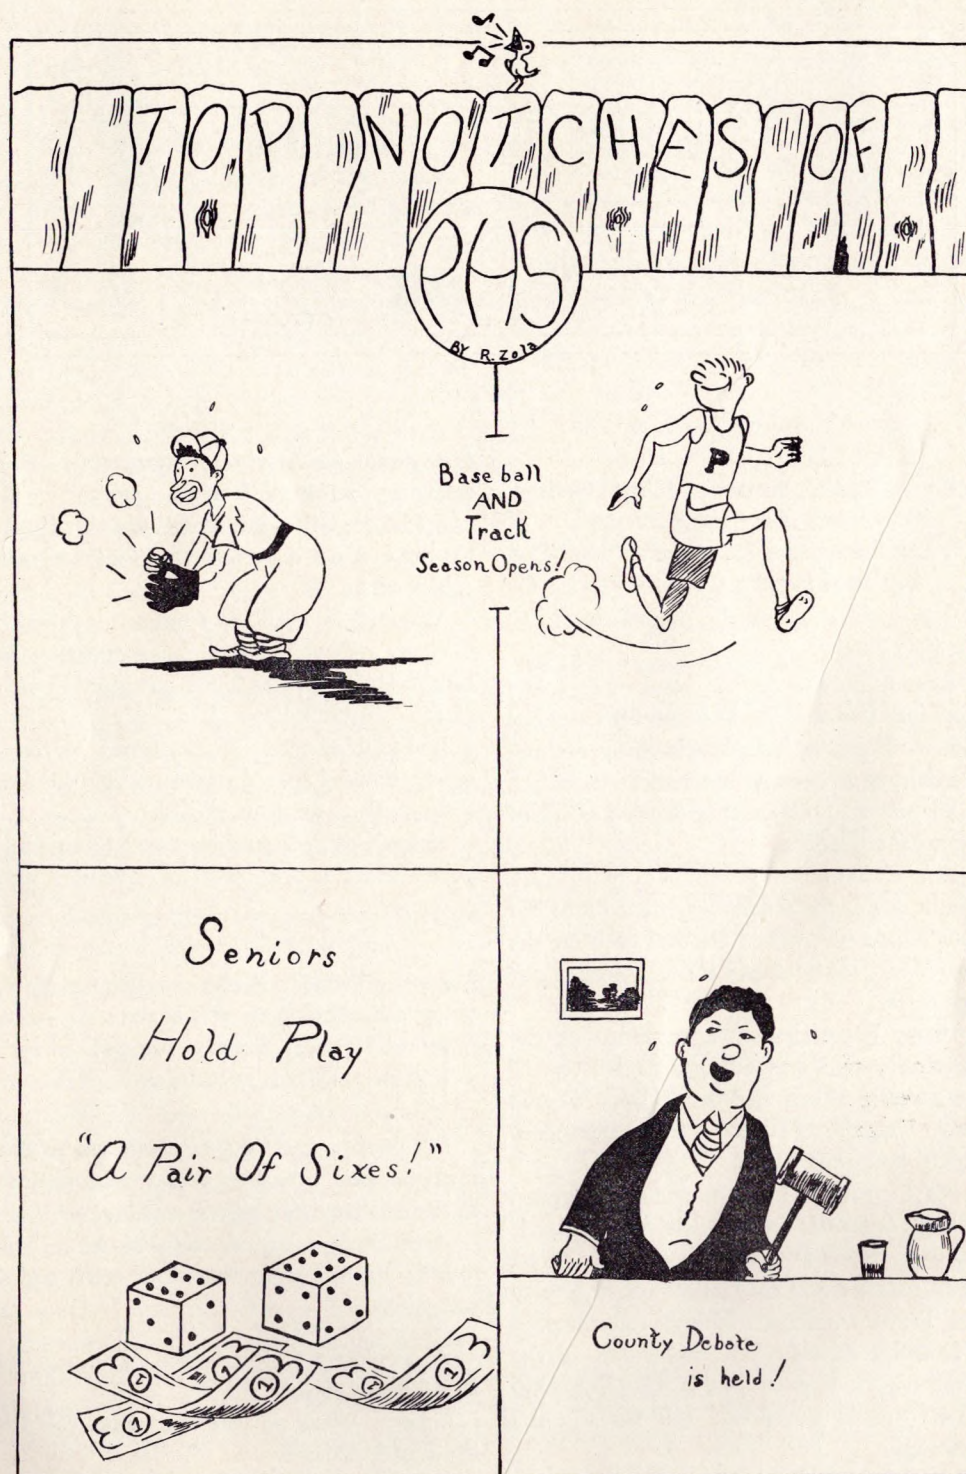 TOP NOTCHES OF
PHS
BY R. Zola
Base ball
AND
Track
Season Opens!
P
Seniors
Hold Play
"A Pair Of Sixes!"
1 1 1 1 1
1
County Debate
is held!